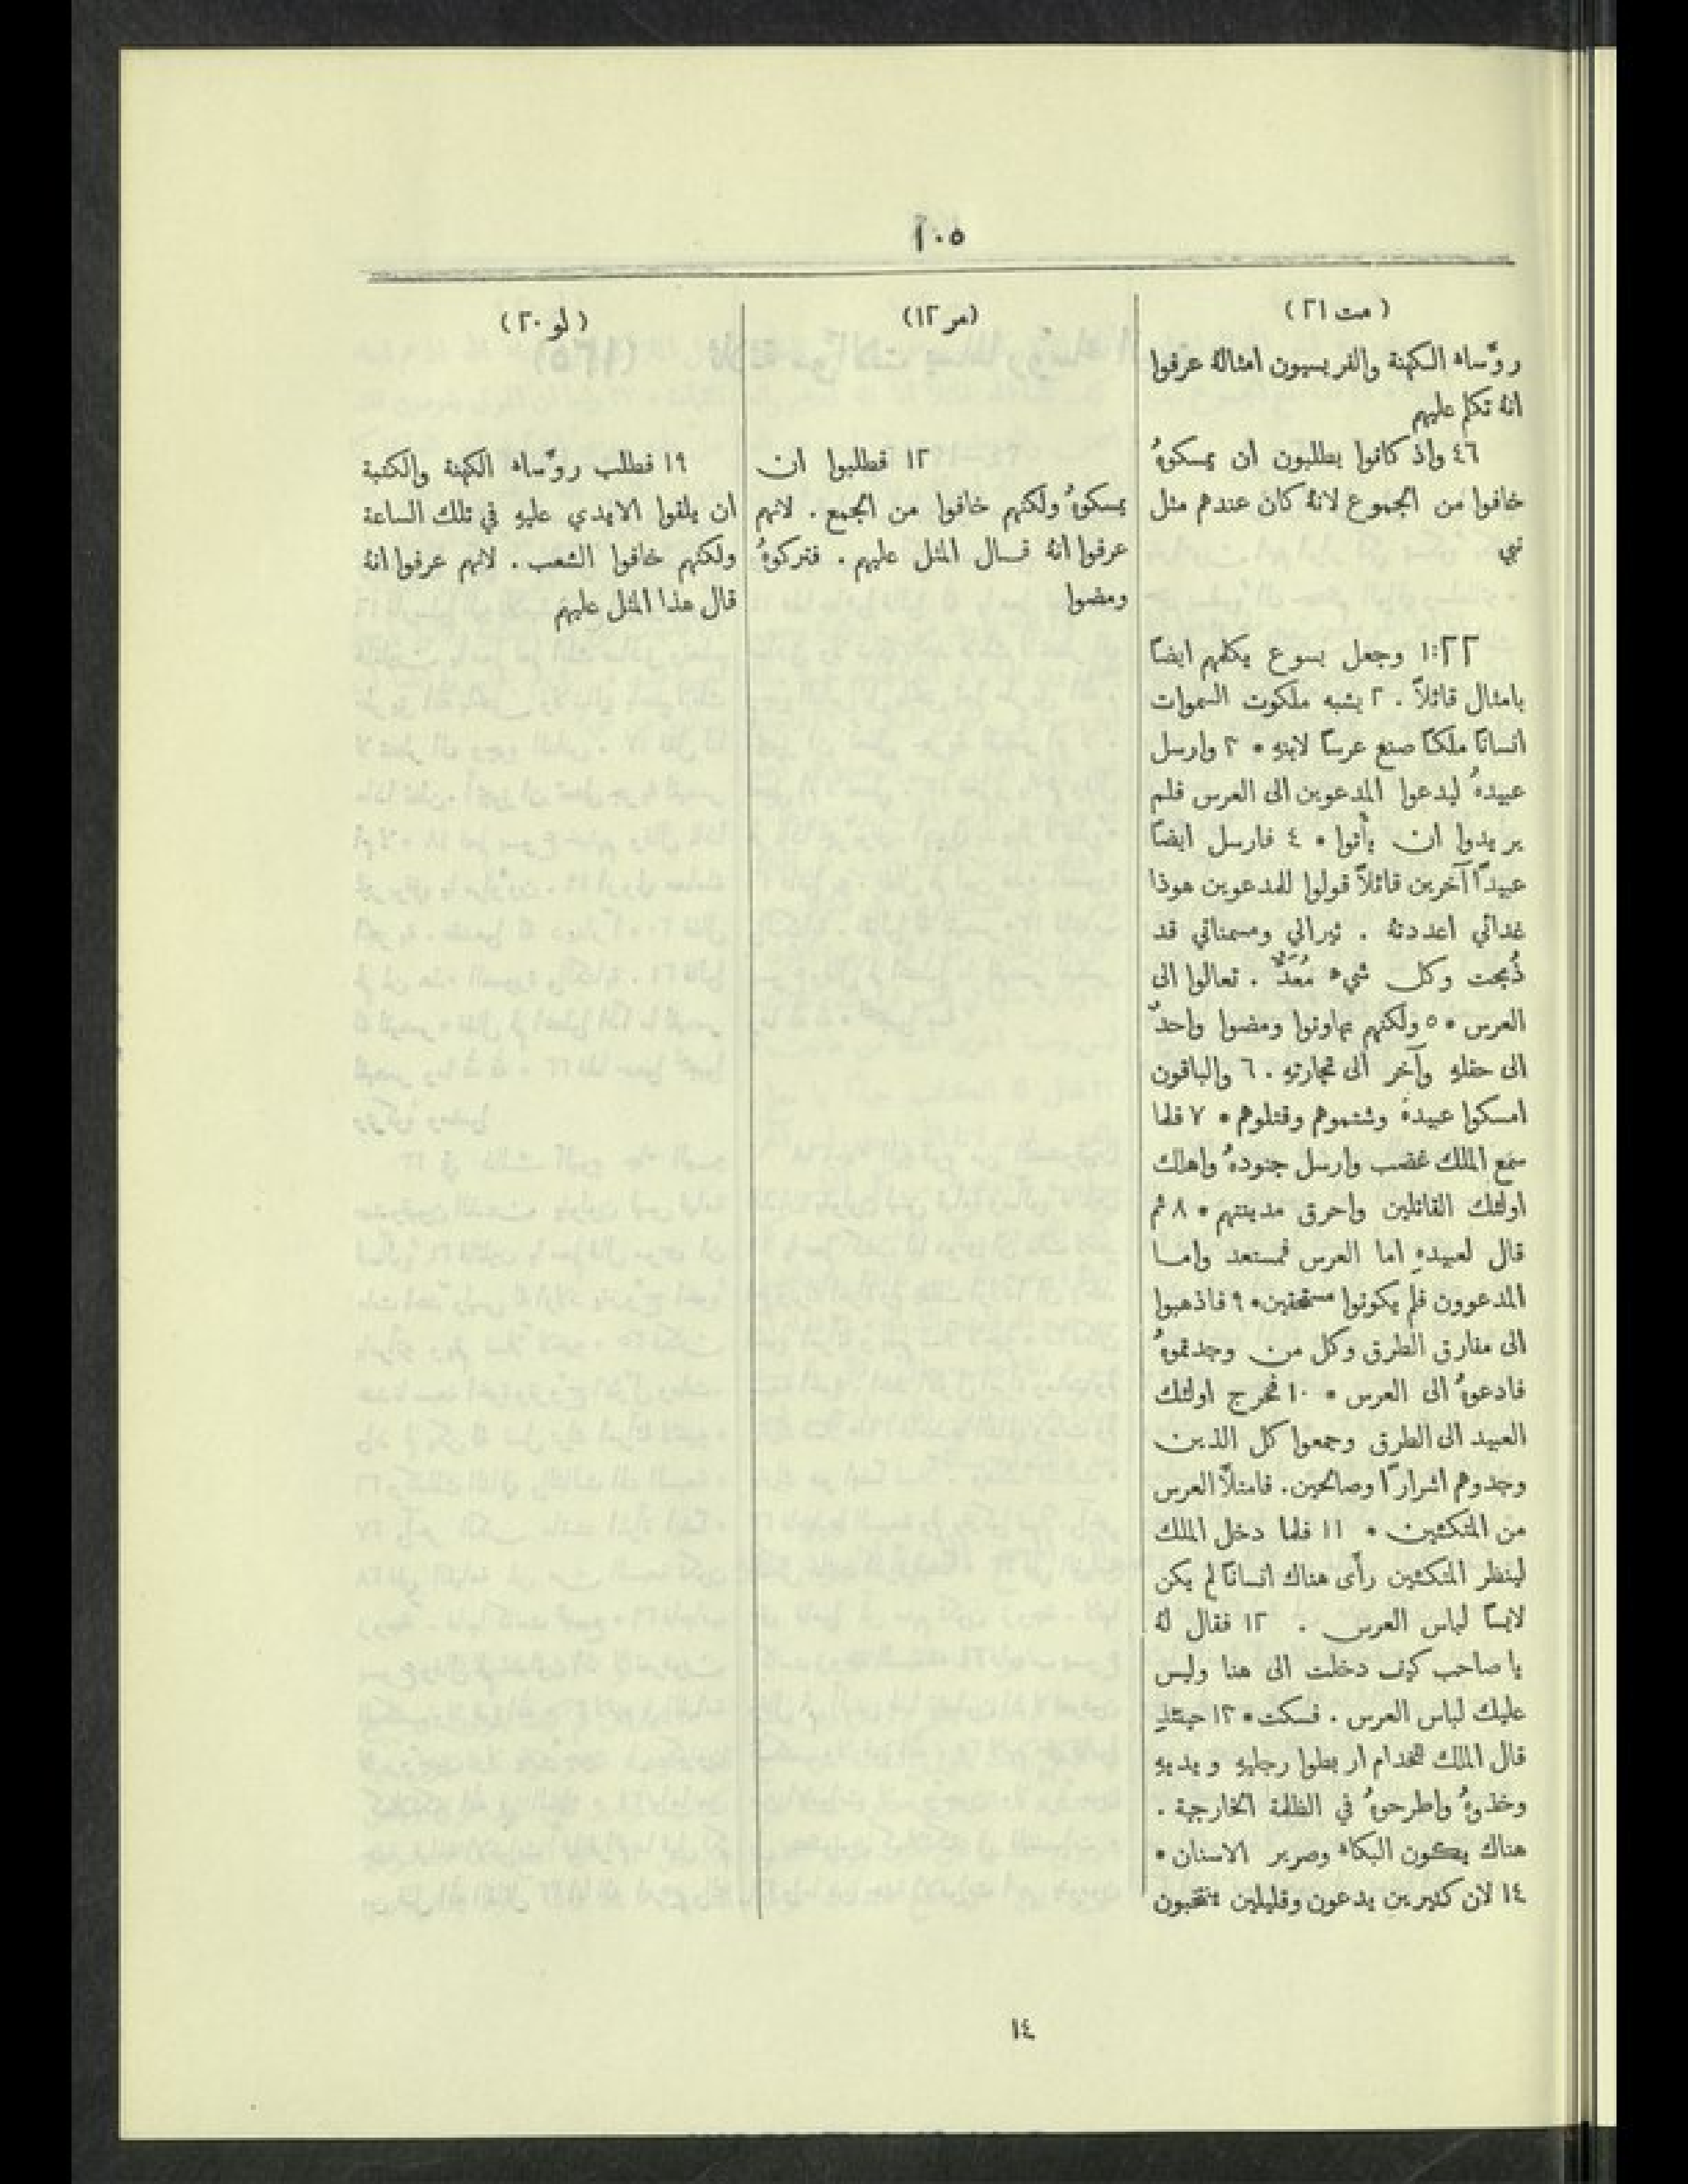 ١٠٥
(مت ٢١)
روّساه الكهنة والفريسيون امثالهُ عرفوا
انهُ تكلم عليهم
٤٦ واذ كانوا يطلبون ان يمسكوهُ
خافوا من الجموع لانهُ كان عندهم مثل
نبي
١:٢٢ وجعل يسوع يكلمهم ايضًا
بامثال قائلاً . ٢ يشبه ملكوت السموات
انسانًا ملكًا صنع عرسًا لابنهِ * ٣ وارسل
عبيدهُ ليدعوا المدعوين الى العرس فلم
يريدوا ان يأتوا * ٤ فارسل ايضًا
عبيدًا آخرين قائلاً قولوا للمدعوين هوذا
غدائي اعددتهُ . ثيراني ومسمناتي قد
ذُبحت وكل شيء مُعَدٌّ . تعالوا الى
العرس * ٥ ولكنهم تهاونوا ومضوا واحدٌ
الى حقلهِ وآخر الى تجارتهِ . ٦ والباقون
امسكوا عبيدهُ وشتموهم وقتلوهم * ٧ فلما
سمع الملك غضب وارسل جنودهُ واهلك
اولئك القاتلين واحرق مدينتهم * ٨ ثم
قال لعبيدهِ اما العرس فمستعد واما
المدعوون فلم يكونوا مستحقين * ٩ فاذهبوا
الى مفارق الطرق وكل من وجدتموهُ
فادعوهُ الى العرس * ١٠ فخرج اولئك
العبيد الى الطرق وجمعوا كل الذين
وجدوهم اشرارًا وصالحين . فامتلأ العرس
من المتكئين * ١١ فلما دخل الملك
لينظر المتكئين رأى هناك انسانًا لم يكن
لابسًا لباس العرس . ١٢ فقال لهُ
يا صاحب كيف دخلت الى هنا وليس
عليك لباس العرس . فسكت * ١٣ حينئذٍ
قال الملك للخدام اربطوا رجليهِ ويديهِ
وخذوهُ واطرحوهُ في الظلمة الخارجية .
هناك يكون البكاء وصرير الاسنان *
١٤ لان كثيرين يدعون وقليلين ينتخبون
(مر ١٢)
١٢ فطلبوا ان
يمسكوهُ ولكنهم خافوا من الجمع . لانهم
عرفوا انهُ قال المثل عليهم . فتركوهُ
ومضوا
(لو ٢٠)
١٩ فطلب روّساه الكهنة والكتبة
ان يلقوا الايدي عليهِ في تلك الساعة
ولكنهم خافوا الشعب . لانهم عرفوا انهُ
قال هذا المثل عليهم
١٤